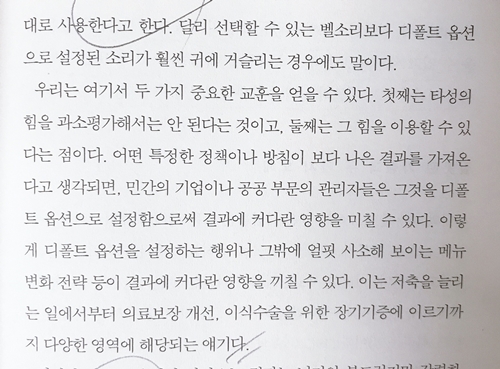 대로 사용한다고 한다. 달리 선택할 수 있는 벨소리보다 디폴트 옵션
으로 설정된 소리가 훨씬 귀에 거슬리는 경우에도 말이다.
우리는 여기서 두 가지 중요한 교훈을 얻을 수 있다. 첫째는 타성의
힘을 과소평가해서는 안 된다는 것이고, 둘째는 그 힘을 이용할 수 있
다는 점이다. 어떤 특정한 정책이나 방침이 보다 나은 결과를 가져온
다고 생각되면, 민간의 기업이나 공공 부문의 관리자들은 그것을 디폴
트 옵션으로 설정함으로써 결과에 커다란 영향을 미칠 수 있다. 이렇
게 디폴트 옵션을 설정하는 행위나 그밖에 얼핏 사소해 보이는 메뉴
변화 전략 등이 결과에 커다란 영향을 끼칠 수 있다. 이는 저축을 늘리
는 일에서부터 의료보장 개선, 이식수술을 위한 장기기증에 이르기까
지 다양한 영역에 해당되는 얘기다.